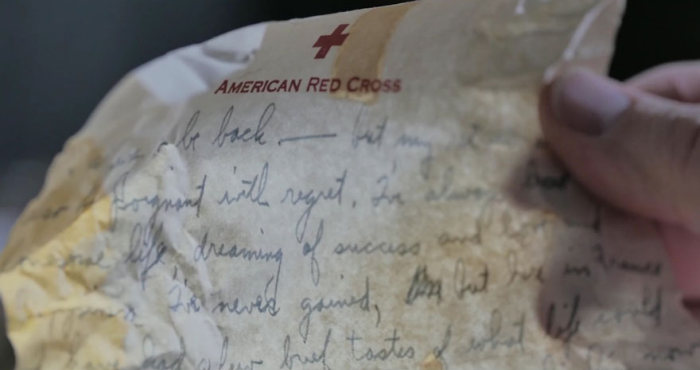 AMERICAN RED CROSS
be back — but my
poignant with regret. I've always
life dreaming of success and
I've never gained, but here in France
had a few brief tastes of what life could